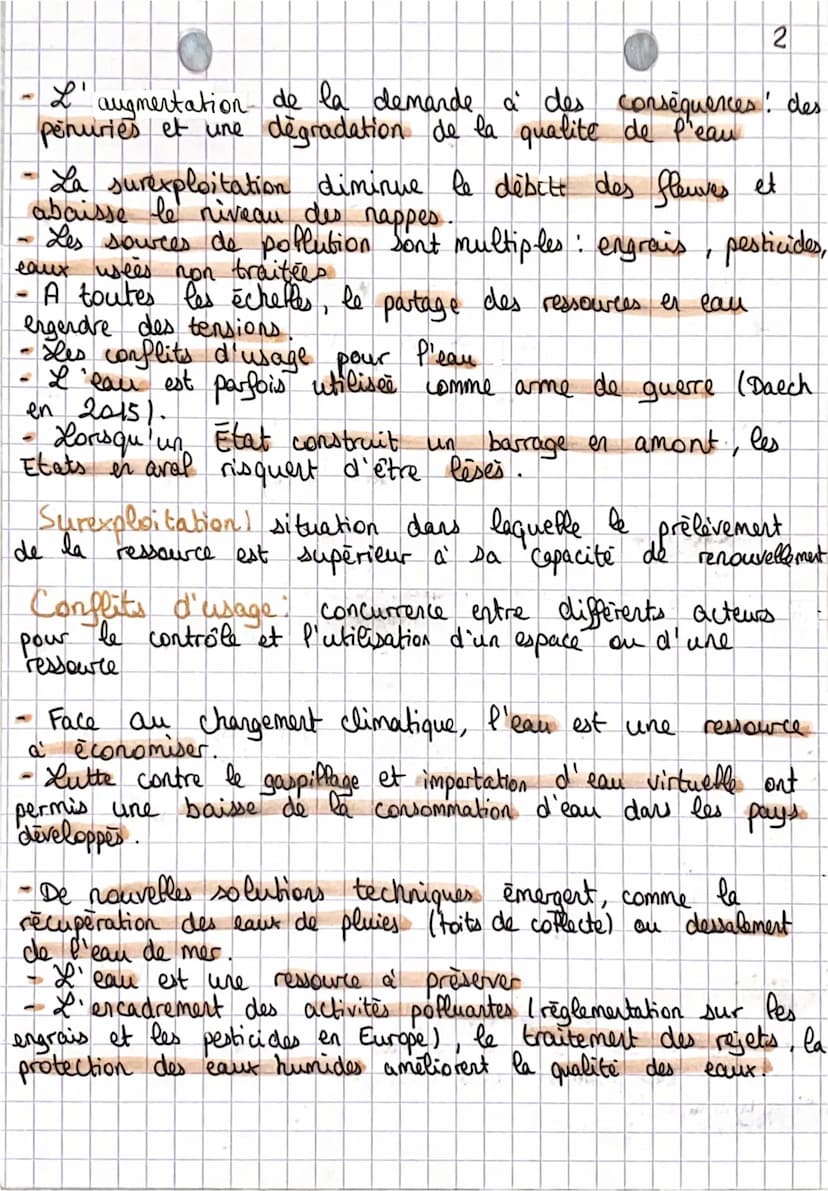 2
- L'augmentation de la demande à des conséquences : des
pénuries et une dégradation de la qualité de l'eau
- La surexploitation diminue le débitt des fleuves et
abaisse le niveau des nappes.
- Les sources de pollution sont multiples : engrais, pesticides,
eaux usées non traitées
- A toutes les échelles, le partage des ressources en eau
engendre des tensions
- Les conflits d'usage pour l'eau
- L'eau est parfois utilisée comme arme de guerre (Daech
en 2015).
- Lorsqu'un État construit un barrage en amont, les
Etats en aval risquent d'être lésés.
Surexploitation) situation dans laquelle le prélèvement
de la ressource est supérieur à sa capacité de renouvellement
Conflits d'usage : concurrence entre différents acteurs
pour le contrôle et l'utilisation d'un espace ou d'une
ressource
- Face au changement climatique, l'eau est une ressource
à économiser.
- Lutte contre le gaspillage et importation d'eau virtuelle ont
permis une baisse de la consommation d'eau dans les pays
développés.
- De nouvelles solutions techniques émergent, comme la
récupération des eaux de pluies (toits de collecte) ou dessalement
de l'eau de mer.
- L'eau est une ressource à préserver
- L'encadrement des activités polluantes (réglementation sur les
engrais et les pesticides en Europe), le traitement des rejets, la
protection des eaux humides améliorent la qualité des eaux.